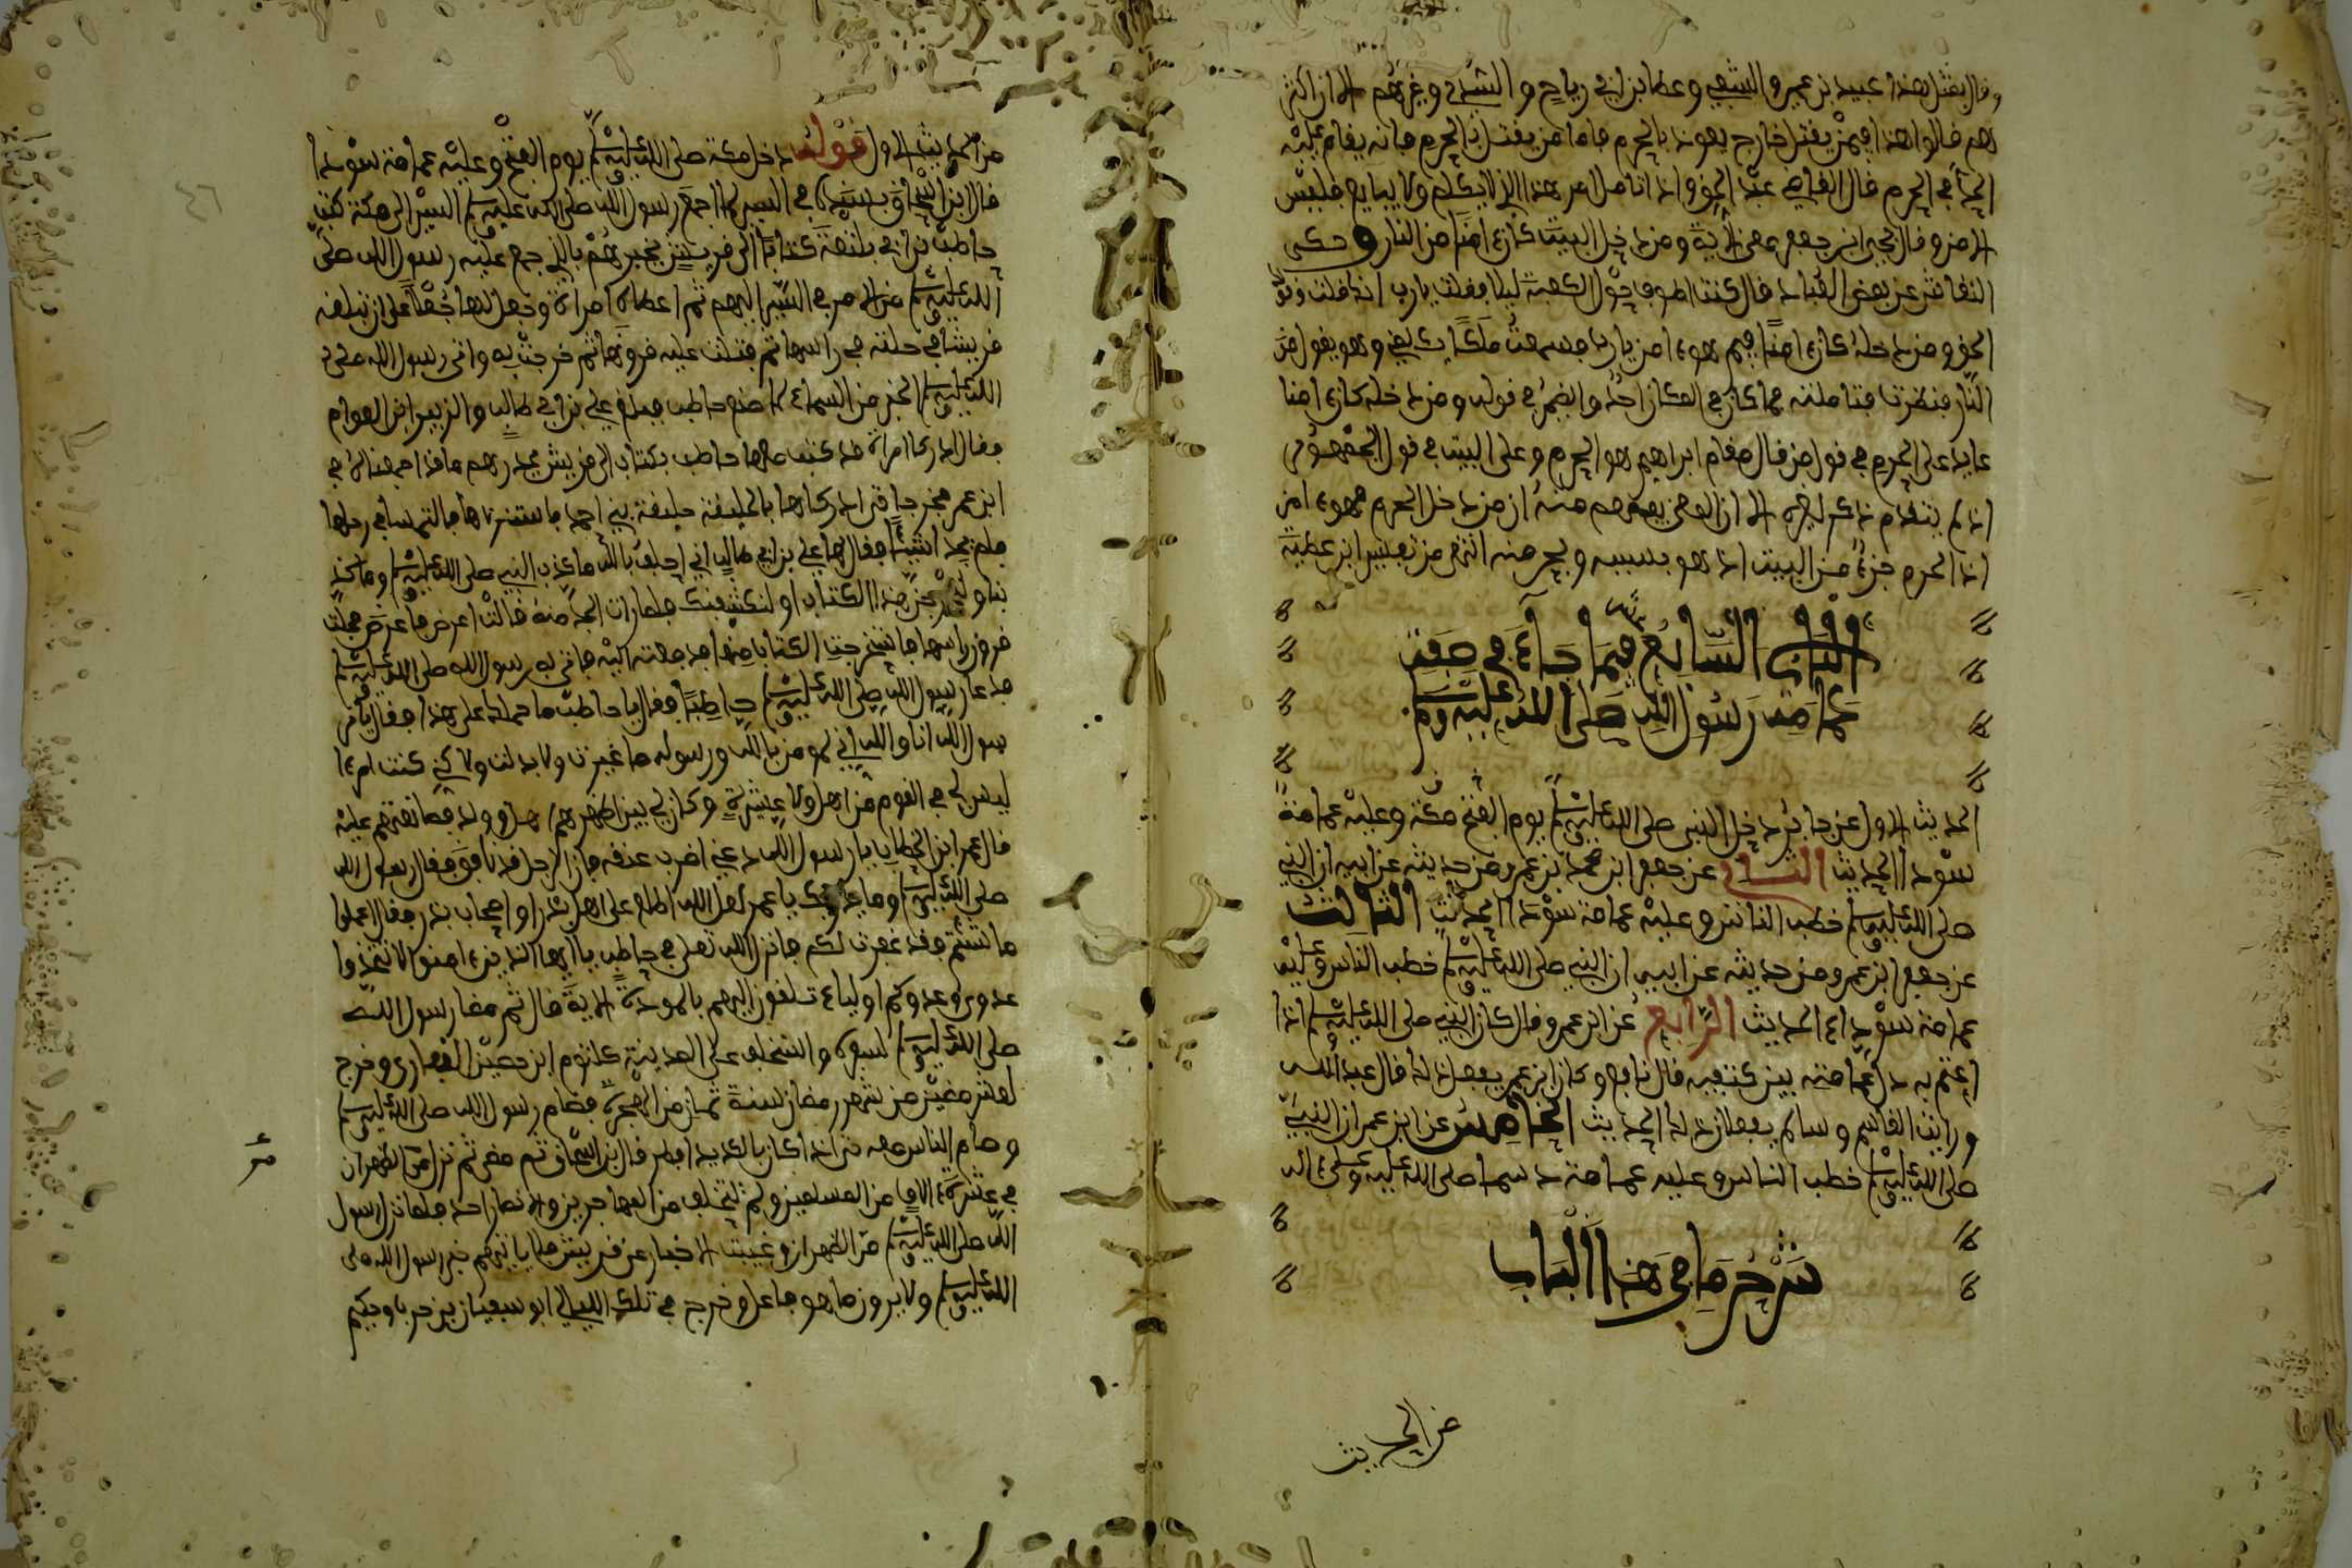 وقال بمثل هذا عبيد بن عمير والشعبي وعطا بن ابي رباح والسدي وغيرهم الا ان اكثر
هم قالوا هذا فيمن يقتل خارج يعوذ بالحرم فاما من يقتل في الحرم فانه يقام عليه
الحد في الحرم قال القاضي عبد الحق واذا تامل امر هذا الذي لا يكلم ولا يبايع فليس
بامن وقال يحيى ابن جعفر معنى الاية ومن دخل البيت كان ءامنا من النار وحكى
النقاش عن بعض العباد قال كنت اطوف حول الكعبة ليلا فقلت يا رب انك قلت وقولك
الحق ومن دخله كان ءامنا فمم هو ءامن يا رب فسمعت ملكا يكلمني وهو يقول من
النار فنظرت فتاملته فما كان في المكان احد والضمير في قوله ومن دخله كان ءامنا
عايد على الحرم في قول من قال مقام ابراهيم هو الحرم وعلى البيت في قول الجمهور
اذ لم يتقدم ذكر لغيره الا ان المعنى يفهم منه ان من دخل الحرم فهو ءامن
اذ الحرم جزء من البيت اذ هو بسببه وبحرمته انتهى من تفسير ابن عطية
الباب السابع فيما جاء في صفة
عمامة رسول الله صلى الله عليه وسلم
الحديث الاول عن جابر دخل النبي صلى الله عليه وسلم يوم الفتح مكة وعليه عمامة
سودا الحديث الثاني عن جعفر ابن محمد بن عمرو من حديثه عن ابيه ان النبي
صلى الله عليه وسلم خطب الناس وعليه عمامة سودا الحديث الثالث
عن جعفر ابن عمرو من حديثه عن ابيه ان النبي صلى الله عليه وسلم خطب الناس وعليه
عمامة سوداء الحديث الرابع عن ابن عمر وقال كان النبي صلى الله عليه وسلم اذا
اعتم به دل عمامته بين كتفيه قال نافع وكان ابن عمر يفعل ذلك قال عبد الله
ورايت القاسم وسالم يفعلان ذلك الحديث الخامس عن ابن عمر ان النبي
صلى الله عليه وسلم خطب الناس وعليه عمامة دسما صلى الله عليه وعلى ءاله
شرح ما في هذا الباب
من الحديث
من الحديث الاول قوله دخل مكة صلى الله عليه وسلم يوم الفتح وعليه عمامة سودا
قال ابن اسحاق بسنده في السير لما اجمع رسول الله صلى الله عليه وسلم السير الى مكة كتب
حاطب بن ابي بلتعة كتابا الى قريش يخبرهم بالذي جمع عليه رسول الله صلى
الله عليه وسلم من الامر في السير اليهم ثم اعطاه امراة وجعل لها جعلا على ان تبلغه
قريشا فجعلته في راسها ثم فتلت عليه قرونها ثم خرجت به واتى رسول الله صلى
الله عليه وسلم الخبر من السماء بما صنع حاطب فبعث علي بن ابي طالب والزبير ابن العوام
فقال ادركا امراة قد كتب معها حاطب بكتاب الى قريش يحذرهم ما قد اجمعنا له في
امرهم فخرجا حتى ادركاها بالحليفة حليفة بني احمد فاستنزلاها فالتمسا في رحلها
فلم يجدا شيئا فقال لها علي بن ابي طالب اني احلف بالله ما كذب النبي صلى الله عليه وسلم وما كذ
بنا ولتخرجن هذا الكتاب او لنكشفنك فلما رات الجد منه قالت اعرض فاعرض فحلت
قرون راسها فاستخرجت الكتاب منها فدفعته اليه فاتى به رسول الله صلى الله عليه وسلم
فدعا رسول الله صلى الله عليه وسلم حاطبا فقال يا حاطب ما حملك على هذا فقال يا ر
سول الله انا والله اني لمومن بالله ورسوله ما غيرت ولا بدلت ولا كني كنت امرءا
ليس لي في القوم من اهل ولا عشيرة وكان لي بين اظهرهم اهل وولد فصانعتهم عليه
قال عمر ابن الخطاب يا رسول الله دعني اضرب عنقه فان الرجل قد نافق فقال رسول الله
صلى الله عليه وسلم وما يدريك يا عمر لعل الله اطلع على اهل بدر او اصحاب بدر فقال اعملوا
ما شئتم فقد غفرت لكم فانزل الله تعلى في حاطب يا ايها الذين ءامنوا لا تتخذوا
عدوي وعدوكم اولياء تلقون اليهم بالمودة الاية قال ثم مضا رسول الله
صلى الله عليه وسلم لسفره واستخلف على المدينة كلثوم ابن حصين الغفاري وخرج
لعشر مضين من شهر رمضان سنة ثمان من الهجرة فصام رسول الله صلى الله عليه وسلم
وصام الناس معه حتى اذا كان بالكديد افطر قال ابن اسحاق ثم مضى ثم نزل مر الظهران
في عشرة ءالاف من المسلمين ولم يتخلف من المهاجرين والانصار احد فلما نزل رسول
الله صلى الله عليه وسلم مر الظهران وغيبت الاخبار عن قريش فلا ياتيهم خبر رسول الله صلى
الله عليه وسلم ولا يدرون ما هو فاعل وخرج في تلك الليالي ابو سفيان بن حرب وحكيم
٤٦